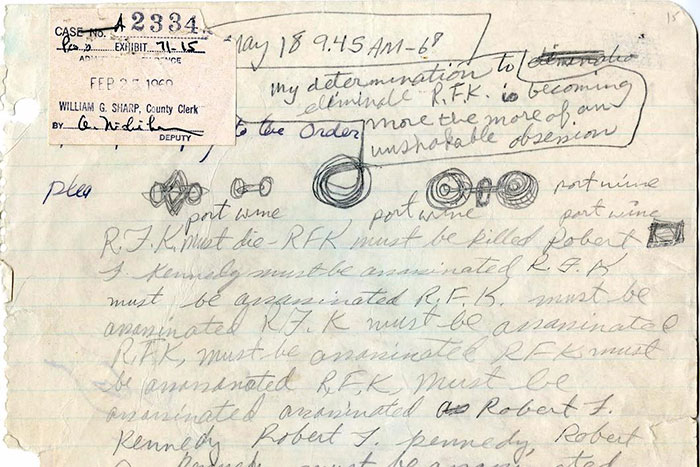 15
CASE No. A 2334
EXHIBIT 71-15
FEB 25 1969
WILLIAM G. SHARP, County Clerk
BY
DEPUTY
May 18 9.45 AM-68
my determination to
eliminate R.F.K. is becoming
more the more of an
unshakable obsession
to the Order
plea
port wine port wine port wine
port wine
R.F.K. must die - RFK must be killed Robert
F. Kennedy must be assassinated R.F.K
must be assassinated R.F.K. must be
assassinated R.F.K must be assassinated
R.F.K. must be assassinated RFK must
be assassinated R.F.K. Must be
assassinated assassinated Robert F.
Kennedy Robert F. Kennedy, Robert
Kennedy must be assassinated